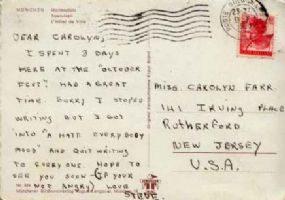 MÜNCHEN
Rathaus
DEAR CAROLYN,
I SPENT 3 DAYS
HERE AT THE "OCTOBER
FEST". HAD A GREAT
TIME. SORRY I STOPED
WRITING BUT I GOT
INTO "A HATE EVERYBODY
MOOD" AND QUIT WRITING
TO EVERYONE. HOPE TO
SEE YOU SOON (IF YOUR
NOT ANGRY) LOVE
STEVE.
MISS. CAROLYN FARR.
141 IRVING PLACE
RUTHERFORD
NEW JERSEY
U.S.A.